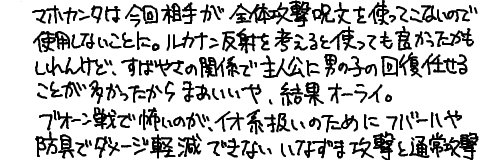 マホカンタは今回相手が全体攻撃呪文を使ってこないので
使用しないことに。ルカナン反射を考えると使っても良かったかも
しれんけど、すばやさの関係で主人公に男の子の回復任せる
ことが多かったからまあいいや、結果オーライ。
ブオーン戦で怖いのが、イオ系扱いのためにフバールや
防具でダメージ軽減できないいなずま攻撃と通常攻撃